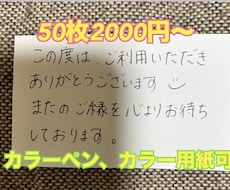 50枚2000円〜
この度は、ご利用いただき
ありがとうございます
またのご縁を心よりお待ち
しております。
カラーペン、カラー用紙可